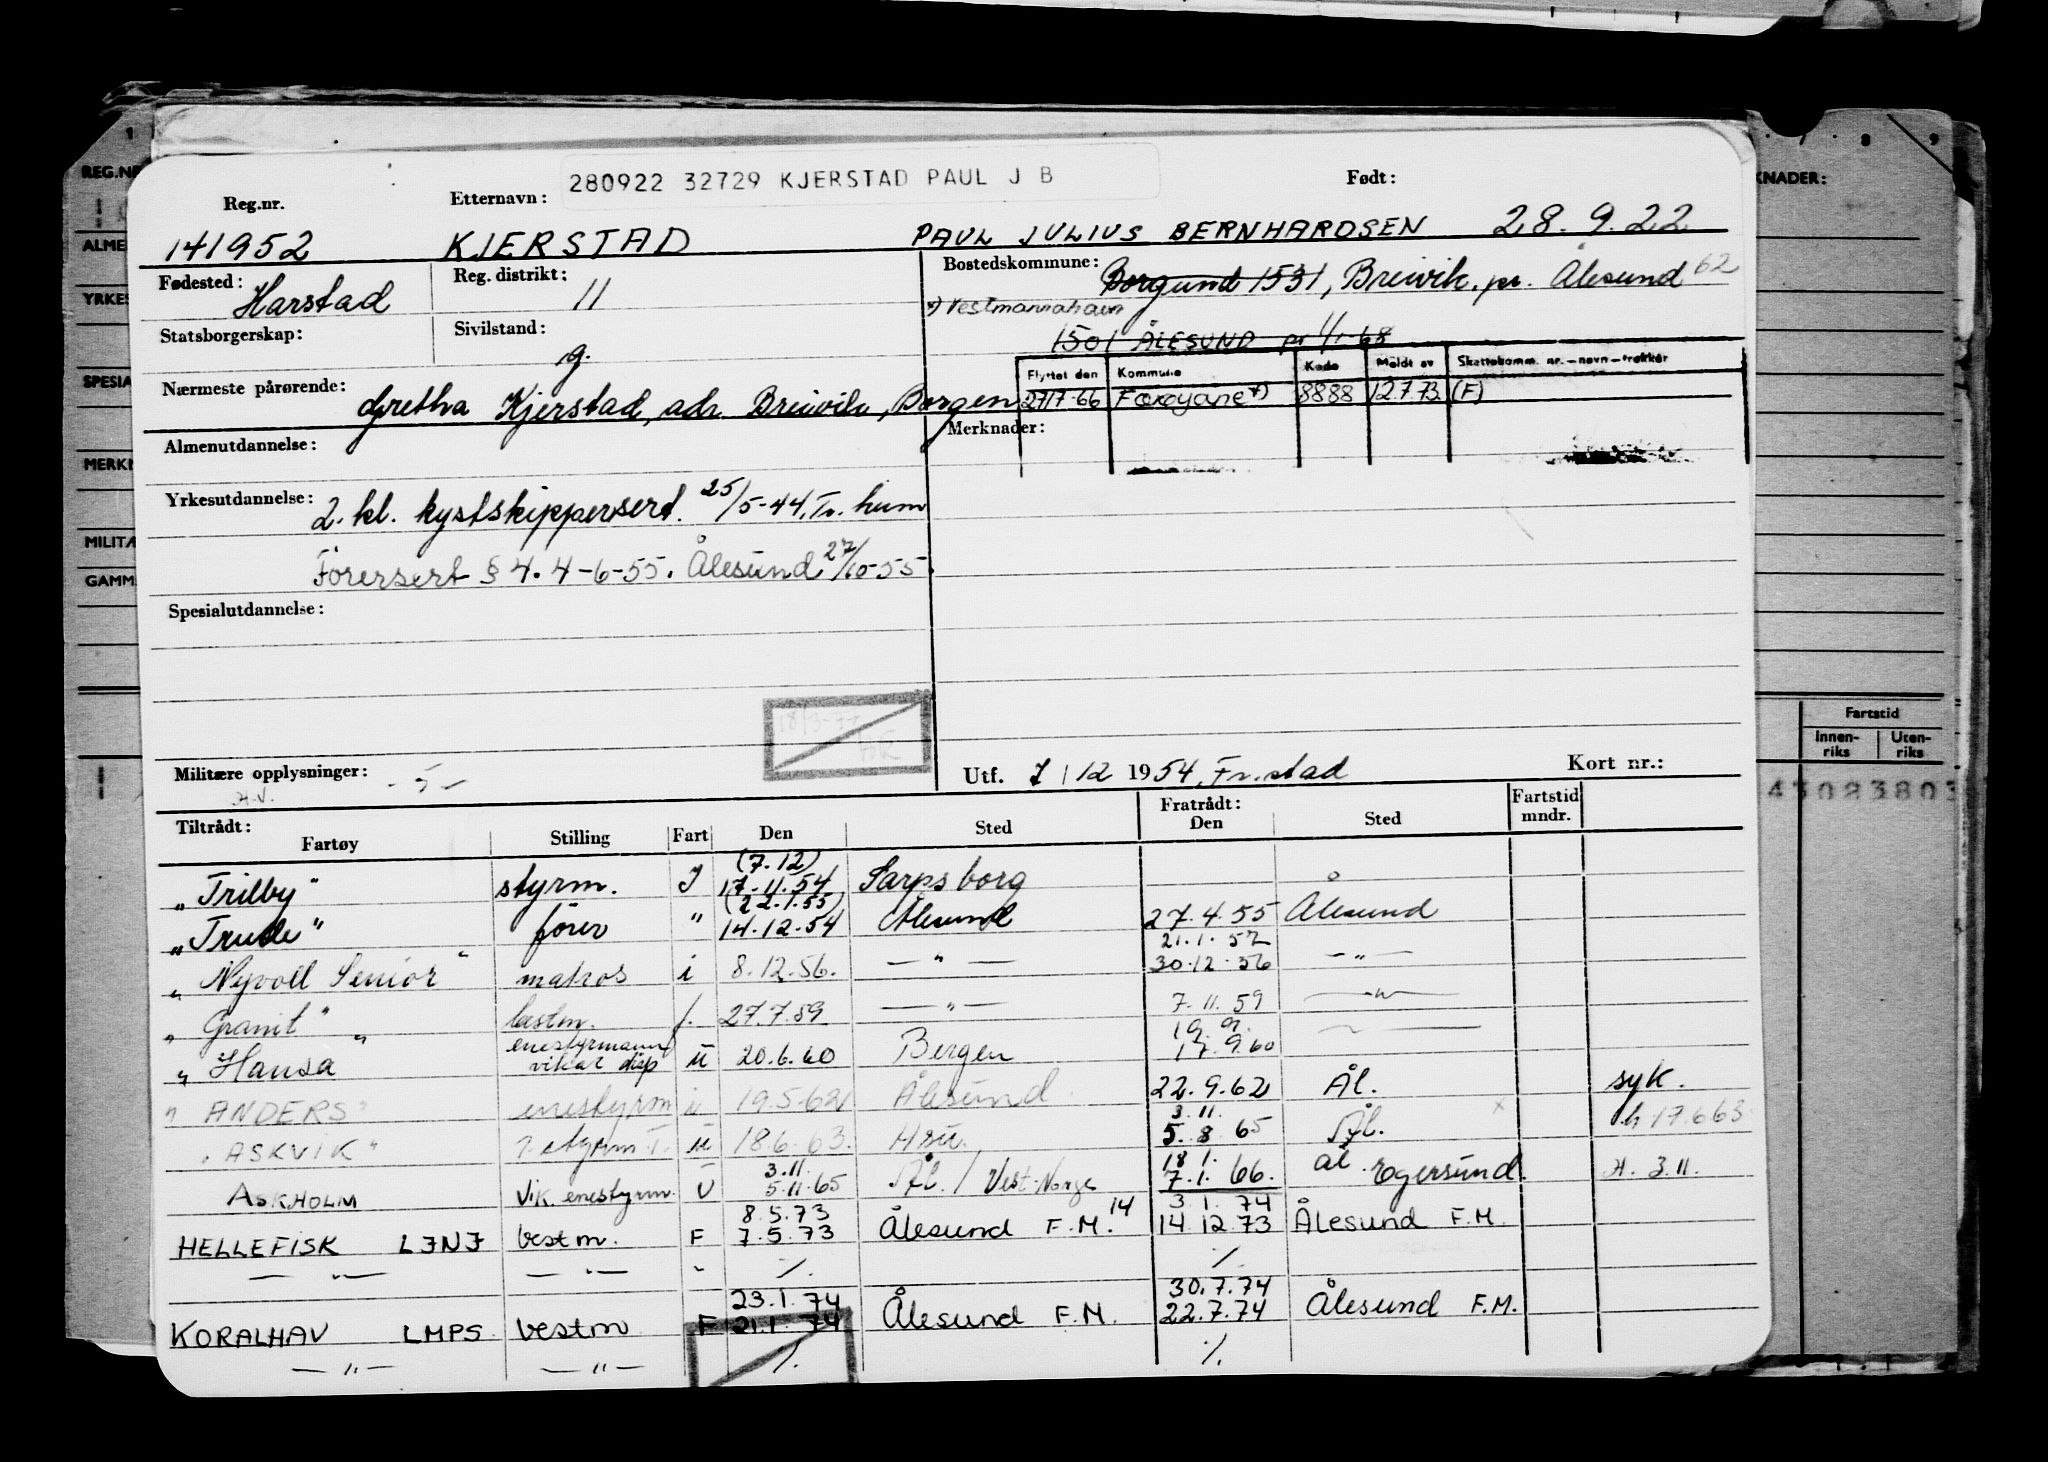 280922 32729 KJERSTAD PAUL J B
Reg.nr. Etternavn: Født:
141952 KJERSTAD PAUL JULIUS BERNHARDSEN 28.9.22
Fødested: Harstad Reg. distrikt: 11 Bostedskommune: Borgund 1531, Breivik, pr. Ålesund 62
*) Vestmannahavn
Statsborgerskap: Sivilstand: g. 1501 ÅLESUND pr 1/1-68
Flyttet den Kommune Kode Meldt av Skattekomm. nr. – navn – trekkår
27/7-66 Færøyane *) 8888 12.7.73 (F)
Nærmeste pårørende: Gretha Kjerstad, adr. Breivik, Borgen
Almenutdannelse: Merknader:
Yrkesutdannelse: 2. kl. kystskippersert. 25/5-44. Tr. heim
Førersert § 4. 4-6-55. Ålesund 27/10-55.
Spesialutdannelse:
18/3-77
Militære opplysninger: - 5 - Utf. 7/12 1954, Fr.stad Kort nr.:
H.V.
Tiltrådt: Fratrådt: Fartstid mndr.
Fartøy Stilling Fart Den Sted Den Sted
(7.12)
"Trilby" styrm. I 17.11.54 Sarpsborg
(22.1.55)
"Trude" fører " 14.12.54 Ålesund 27.4.55 Ålesund
21.1.57
"Nyvoll Senior" matros i 8.12.56. — " — 30.12.56 — " —
"Granit" bestm. f. 27.7.59 — " — 7.11.59 — " —
enestyrmann 19.9.
"Hansa" vikar disp u 20.6.60 Bergen 17.9.60
"ANDERS" enestyrm i 19.5.62 Ålesund 22.9.62 Ål. syk.
3.11.
"ASKVIK" u 18.6.63. 5.8.65 Ål. x h 17.6.63
3.11. 18.1.
ASKHOLM Vik. enestyrm. U 5.11.65 Ål. / Vest-Norge 7.1.66. Ål. Egersund. H. 3.11.
8.5.73 3.1.74
HELLEFISK LJNJ bestm. F 7.5.73 Ålesund F.M. 14 14.12.73 Ålesund F.M.
— " — — " — " ./. ./.
23.1.74 30.7.74
KORALHAV LMPS bestm F 21.1.74 Ålesund F.M. 22.7.74 Ålesund F.M.
— " — — " — ./. ./.
REG.NR
ALME
YRKES
SPESIA
MERKN
MILITÆ
GAMM
KNADER:
8 9
Fartstid
Innen-riks Uten-riks